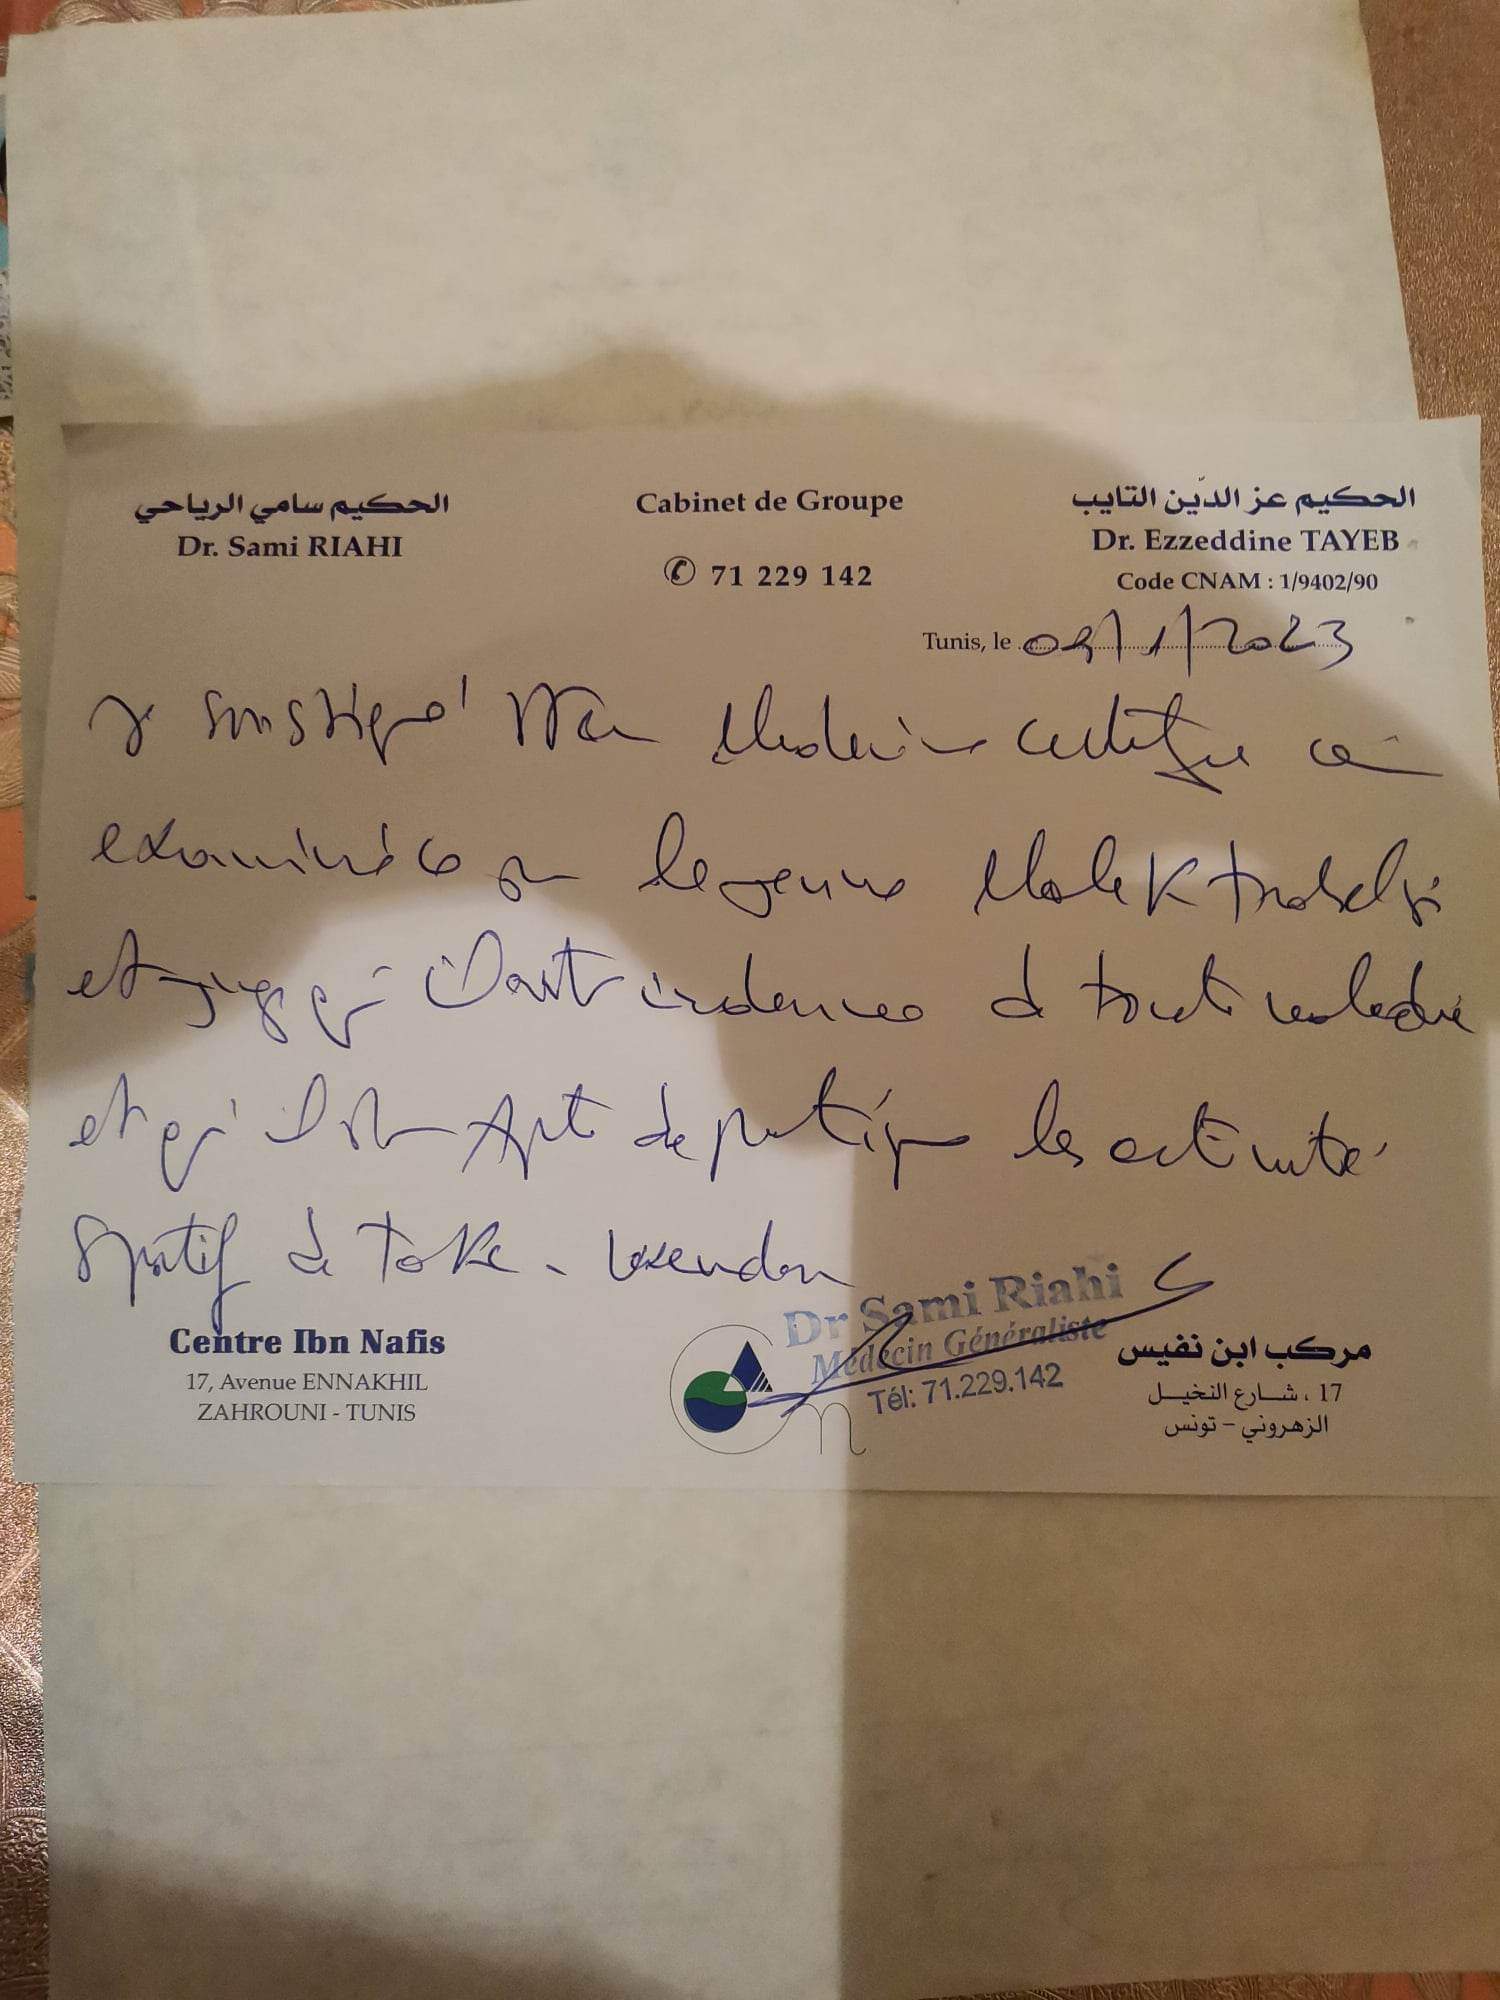 الحكيم سامي الرياحي
Dr. Sami RIAHI
Cabinet de Groupe
✆ 71 229 142
الحكيم عز الدّين التايب
Dr. Ezzeddine TAYEB
Code CNAM : 1/9402/90
Tunis, le 09/1/2023
Je soussigné Medecin certifie
examiné ce jour le jeune Malek
et indemne de toute maladie
et qu'il est Apte de pratique les activité
sportif de
Dr Sami Riahi
Médecin Généraliste
Tél: 71.229.142
Centre Ibn Nafis
17, Avenue ENNAKHIL
ZAHROUNI - TUNIS
مركب ابن نفيس
17 ، شارع النخيل
الزهروني - تونس